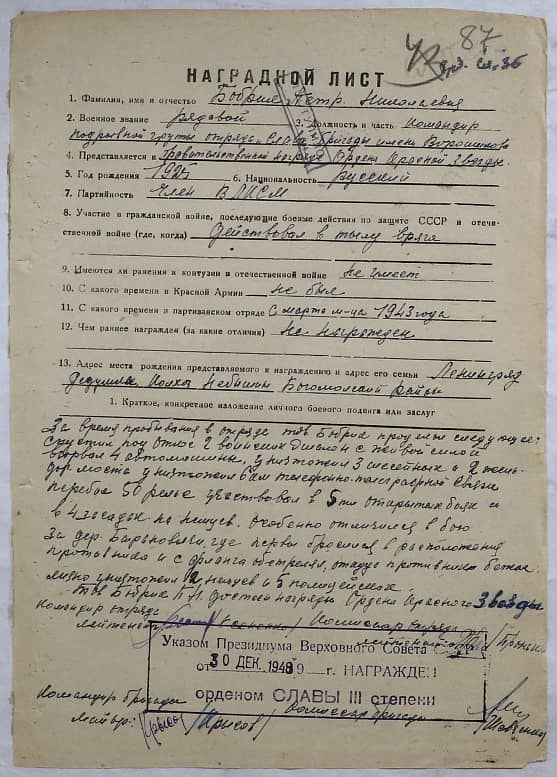 87
НАГРАДНОЙ ЛИСТ
1. Фамилия, имя и отчество Бобрик Петр Николаевич
2. Военное звание рядовой 3. Должность и часть Командир
подрывной группы отряда Бригады имени Ворошилова
4. Представляется к Правительственной награде Ордена Красной Звезды
5. Год рождения 6. Национальность русский
7. Партийность Член ВЛКСМ
8. Участие в гражданской войне, последующие боевые действия по защите СССР и отече-
ственной войне (где, когда) Действовал в тылу врага
9. Имеются ли ранения и контузии в отечественной войне не имеет
10. С какого времени в Красной Армии не был
11. С какого времени в партизанском отряде с марта м-ца 1943 года
12. Чем ранее награжден (за какие отличия) Не награжден
13. Адрес места рождения представляемого к награждению и адрес его семьи
1. Краткое, конкретное изложение личного боевого подвига или заслуг
За время пребывания в отряде тов Бобрик проделал следующее:
Спустил под откос 2 воинских эшелона с живой силой
взорвал 4 автомашины, уничтожил 3 шоссейных и 2
моста уничтожил телефонно-телеграфной связи
перебил 50 рельс участвовал в 5ти открытых боях и
в 4 засадах на немцев. Особенно отличился в бою
за дер. где первый бросился в расположение
противника и с фланга обстрелял, откуда противник бежал
лично уничтожил 2 немцев и 5 полицейских.
Тов Бобрик П.Н. достоин награды Ордена Красного Звезды
Командир отряда
лейтенант Комиссар отряда
лейтенант
Указом Президиума Верховного Совета
от 30 ДЕК. 1948 г. НАГРАЖДЕН
орденом СЛАВЫ III степени
Командир бригады Комиссар бригады
майор: